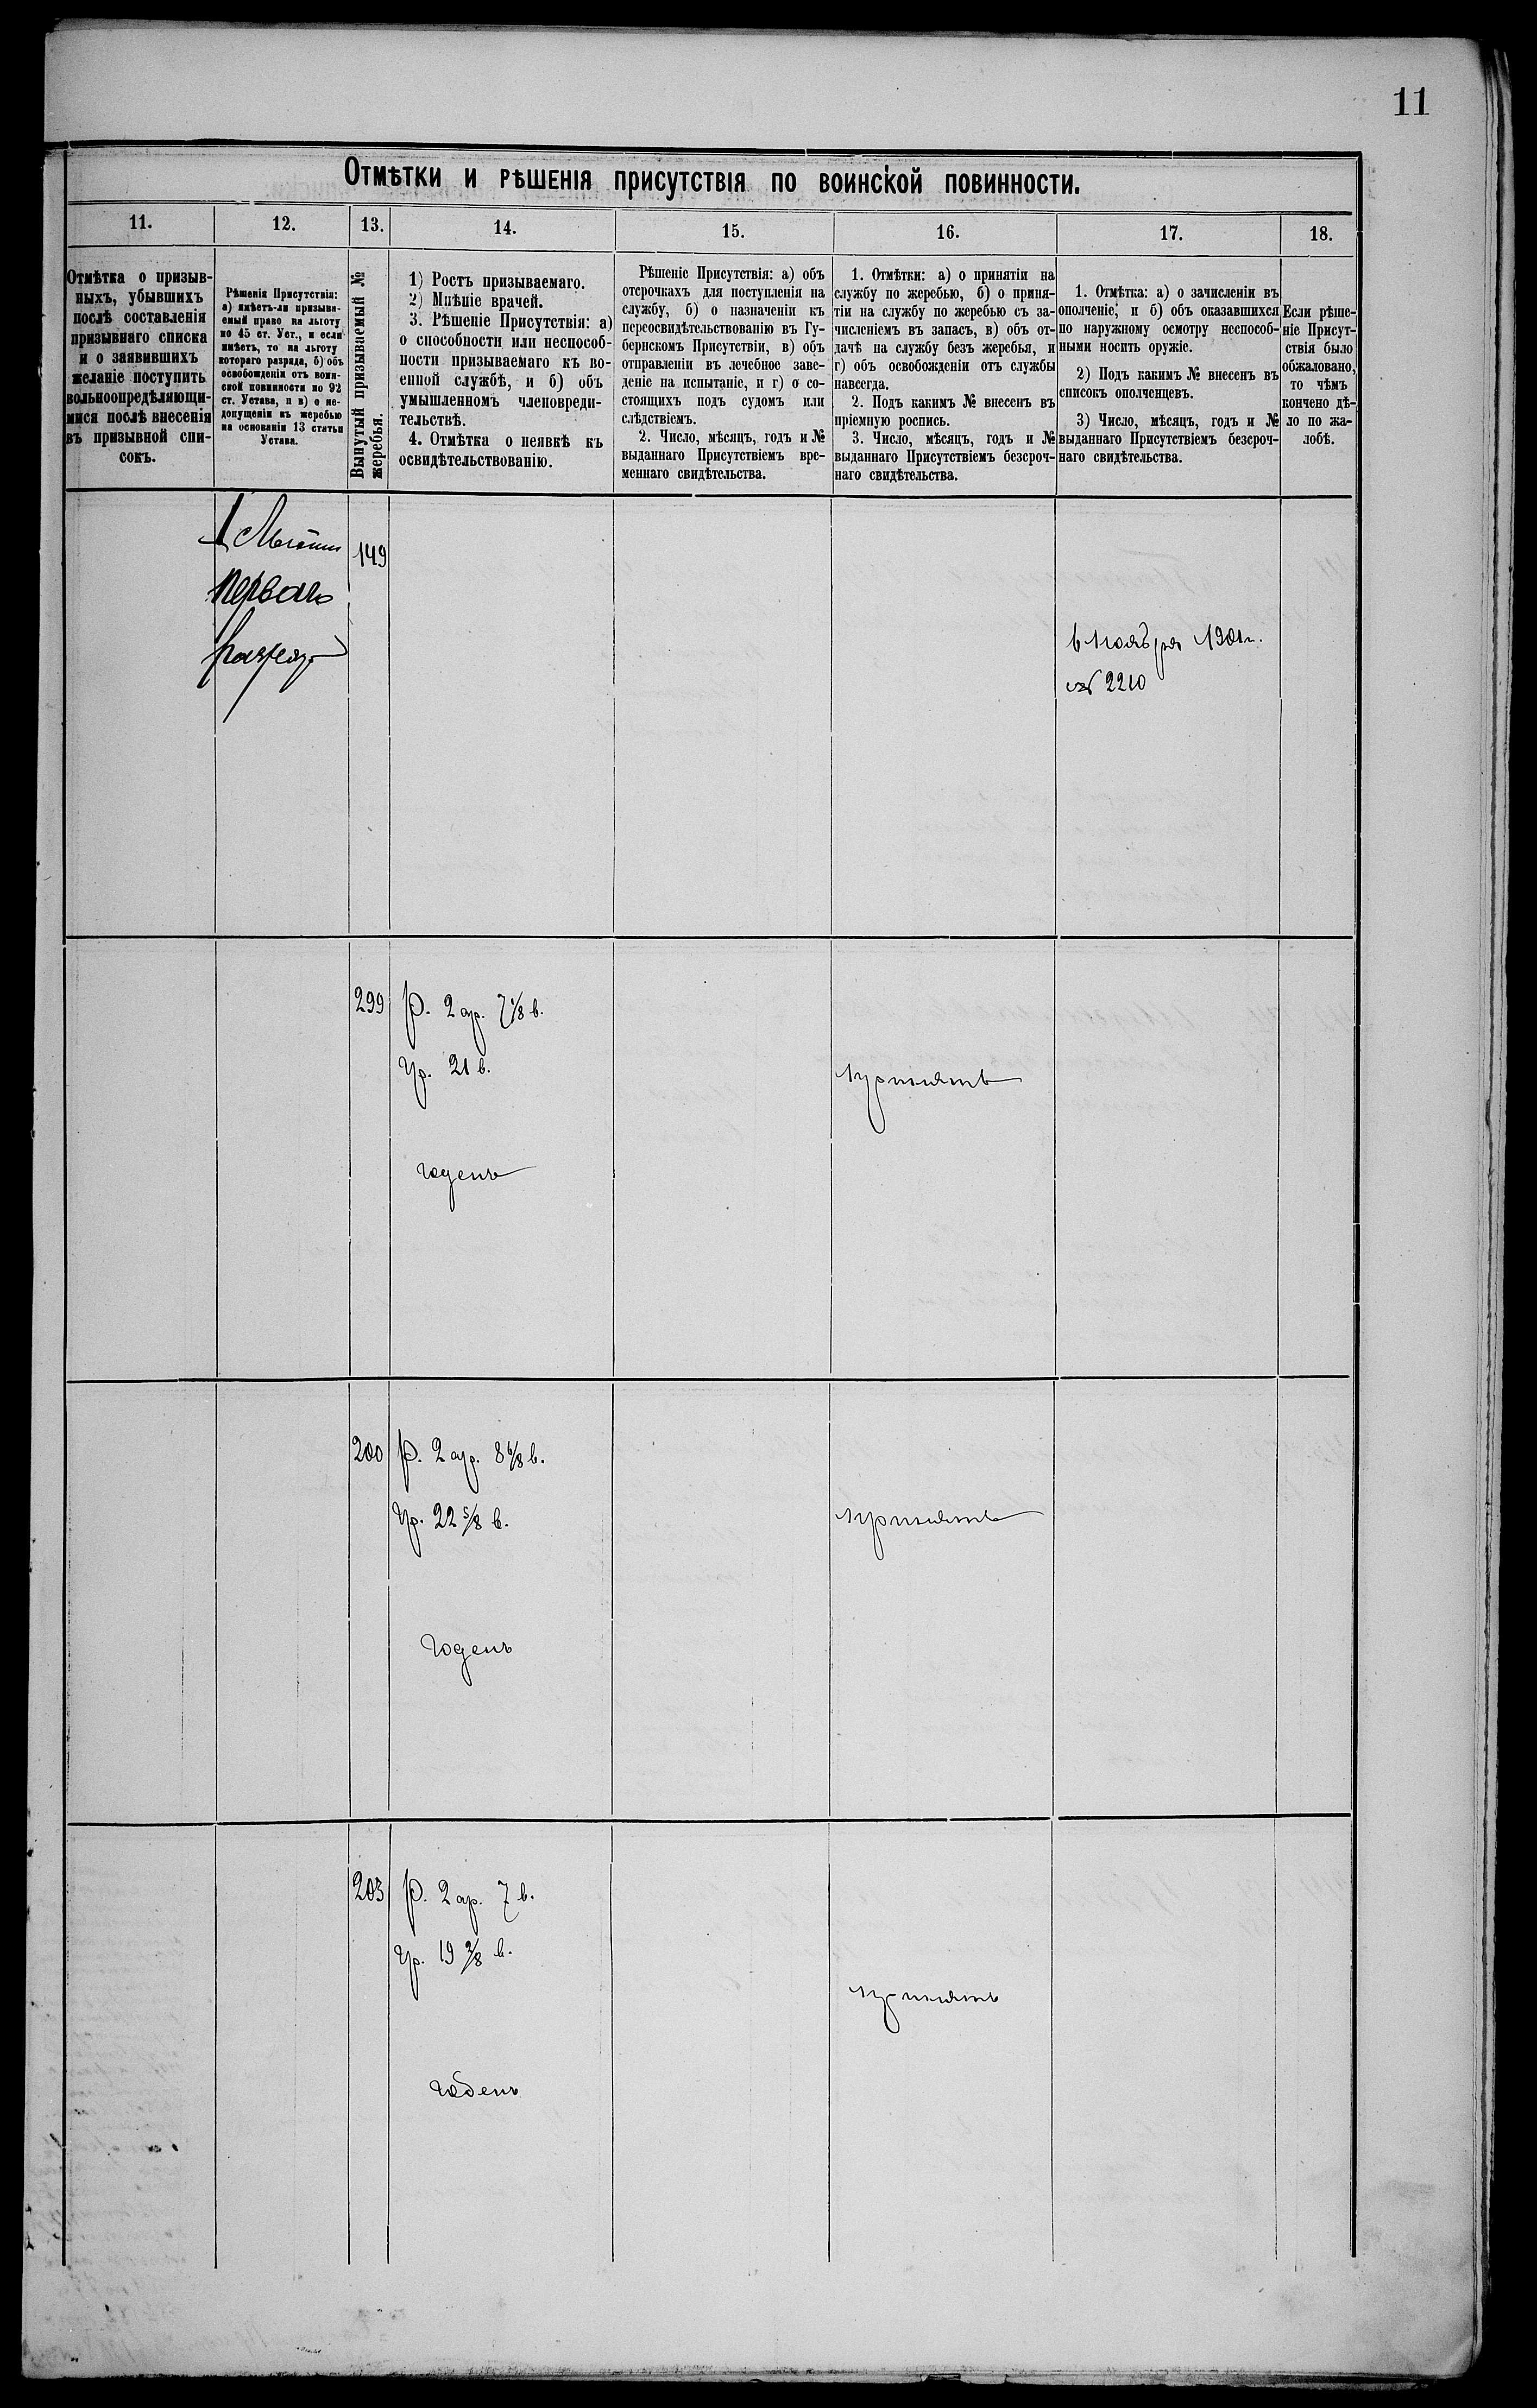 11
Отмѣтки и рѣшенія присутствія по воинской повинности.
11.
12.
13.
14.
15.
16.
17.
18.
Отмѣтка о призыв-
ныхъ, убывшихъ
послѣ составленія
призывнаго списка
и о заявившихъ
желаніе поступить
вольноопредѣляющи-
мися послѣ внесенія
въ призывной спи-
сокъ.
Рѣшенія Присутствія:
а) имѣетъ-ли призыва-
емый право на льготу
по 45 ст. Уст., и если
имѣетъ, то на льготу
котораго разряда, б) объ
освобожденіи отъ воин-
ской повинности по 92
ст. Устава, и в) о не-
допущеніи къ жеребью
на основаніи 13 статьи
Устава.
Вынутый призываемый №
жеребья.
1) Ростъ призываемаго.
2) Мнѣніе врачей.
3. Рѣшеніе Присутствія: а)
о способности или неспособ-
ности призываемаго къ во-
енной службѣ, и б) объ
умышленномъ членовреди-
тельствѣ.
4. Отмѣтка о неявкѣ къ
освидѣтельствованію.
Рѣшеніе Присутствія: а) объ
отсрочкахъ для поступленія на
службу, б) о назначеніи къ
переосвидѣтельствованію въ Гу-
бернскомъ Присутствіи, в) объ
отправленіи въ лечебное заве-
деніе на испытаніе, и г) о со-
стоящихъ подъ судомъ или
слѣдствіемъ.
2. Число, мѣсяцъ, годъ и №
выданнаго Присутствіемъ вре-
меннаго свидѣтельства.
1. Отмѣтки: а) о принятіи на
службу по жеребью, б) о приня-
тіи на службу по жеребью съ за-
численіемъ въ запасъ, в) объ от-
дачѣ на службу безъ жеребья, и
г) объ освобожденіи отъ службы
навсегда.
2. Подъ какимъ № внесенъ въ
пріемную роспись.
3. Число, мѣсяцъ, годъ и №
выданнаго Присутствіемъ безсроч-
наго свидѣтельства.
1. Отмѣтка: а) о зачисленіи въ
ополченіе, и б) объ оказавшихся
по наружному осмотру неспособ-
ными носить оружіе.
2) Подъ какимъ № внесенъ въ
списокъ ополченцевъ.
3) Число, мѣсяцъ, годъ и №
выданнаго Присутствіемъ безсроч-
наго свидѣтельства.
Если рѣше-
ніе Присут-
ствія было
обжаловано,
то чѣмъ
кончено дѣ-
ло по жа-
лобѣ.
Льготы
перваго
разряда
149
6 ноября 1901 г.
№ 2210
299
р. 2 ар. 7 1/8 в.
гр. 21 в.
годенъ
принятъ
200
р. 2 ар. 8 6/8 в.
гр. 22 5/8 в.
годенъ
принятъ
203
р. 2 ар. 7 в.
гр. 19 7/8 в.
годенъ
принятъ